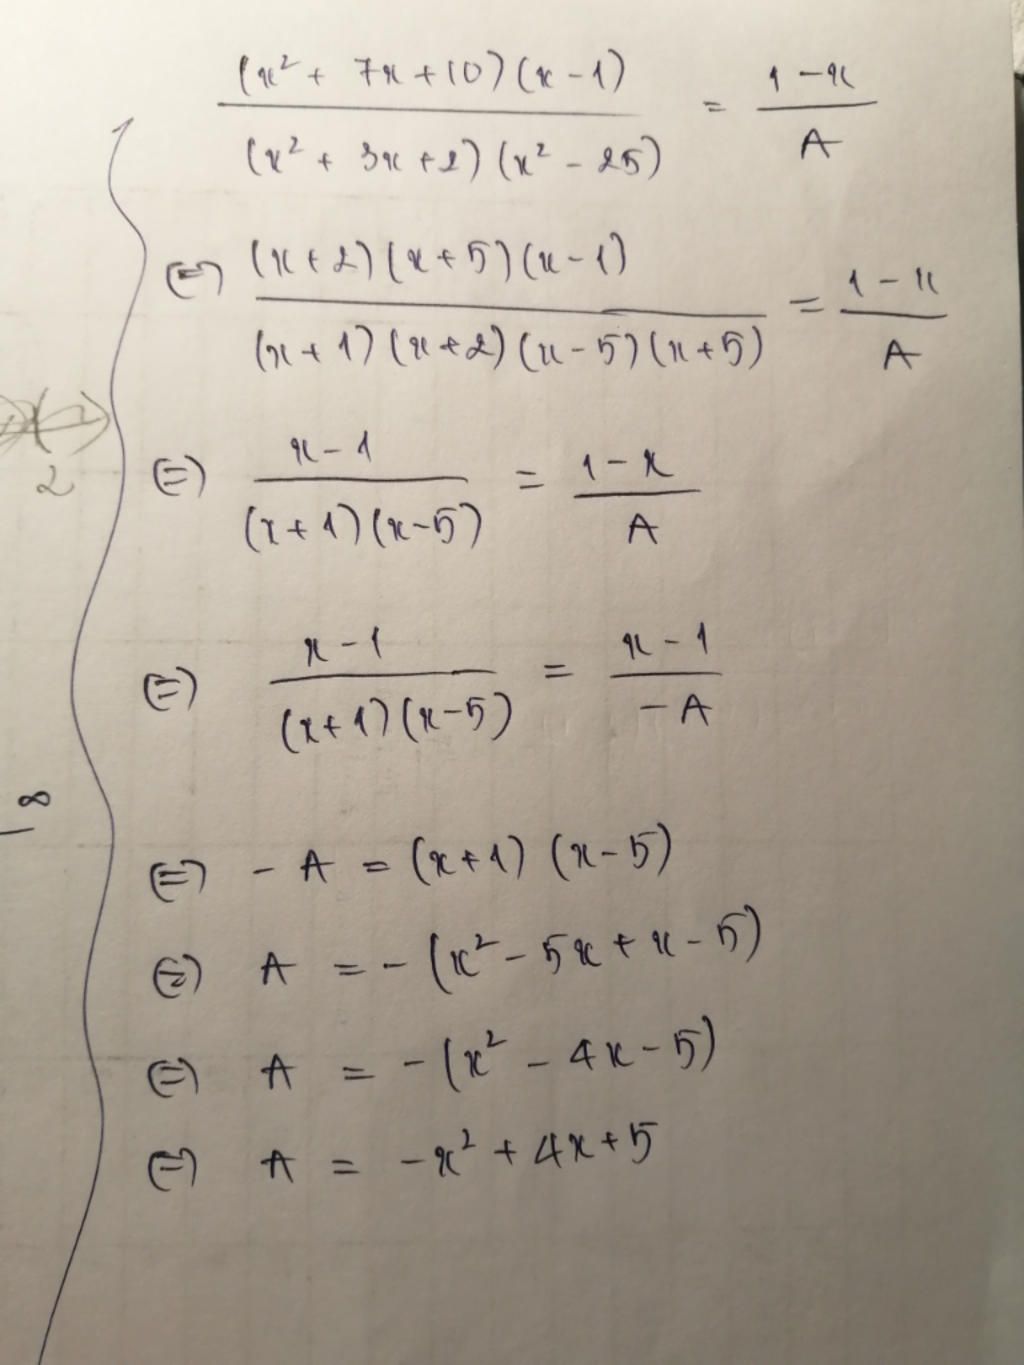 (x² + 7x + 10)(x - 1) / (x² + 3x + 2)(x² - 25) = 1 - x / A
(=) (x + 2)(x + 5)(x - 1) / (x + 1)(x + 2)(x - 5)(x + 5) = 1 - x / A
2
(=) x - 1 / (x + 1)(x - 5) = 1 - x / A
(=) x - 1 / (x + 1)(x - 5) = x - 1 / - A
8
(=) - A = (x + 1) (x - 5)
(=) A = - (x² - 5x + x - 5)
(=) A = - (x² - 4x - 5)
(=) A = - x² + 4x + 5